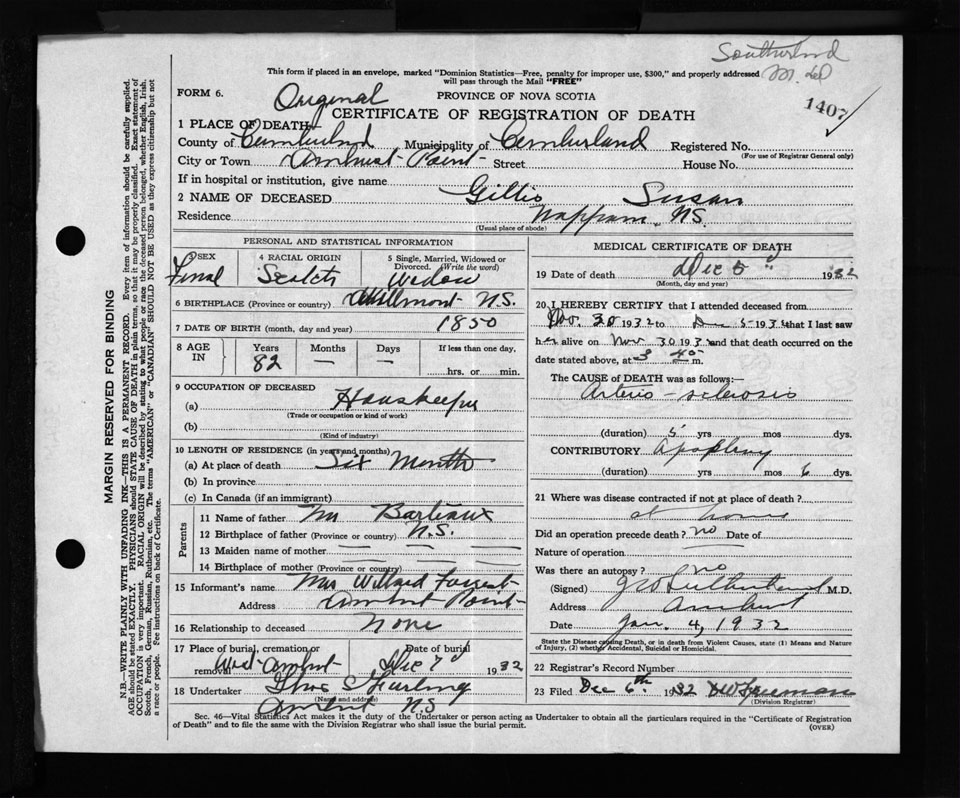 Southerland
M. Ed
1407
This form if placed in an envelope, marked "Dominion Statistics—Free, penalty for improper use, $300," and properly addressed
will pass through the Mail "FREE"
FORM 6.
Original
PROVINCE OF NOVA SCOTIA
CERTIFICATE OF REGISTRATION OF DEATH
1 PLACE OF DEATH—
County of Cumberland Municipality of Cumberland Registered No.
(For use of Registrar General only)
City or Town Amherst Point Street House No.
If in hospital or institution, give name
2 NAME OF DECEASED Gillis Susan
Residence Nappan N.S.
(Usual place of abode)
PERSONAL AND STATISTICAL INFORMATION
3 SEX 4 RACIAL ORIGIN 5 Single, Married, Widowed or
Divorced. (Write the word)
Scotch Widow
6 BIRTHPLACE (Province or country) N.S.
7 DATE OF BIRTH (month, day and year) 1850
8 AGE IN Years Months Days If less than one day,
82 — —
hrs. or min.
9 OCCUPATION OF DECEASED
(a) Housekeeper
(Trade or occupation or kind of work)
(b)
(Kind of industry)
10 LENGTH OF RESIDENCE (in years and months)
(a) At place of death Six Months
(b) In province
(c) In Canada (if an immigrant)
Parents
11 Name of father Barteaux
12 Birthplace of father (Province or country) N.S.
13 Maiden name of mother — — —
14 Birthplace of mother (Province or country) — — —
15 Informant's name Mrs Willard Forrest
Address Amherst Point
16 Relationship to deceased None
17 Place of burial, cremation or removal Date of burial
West Amherst Dec 7 1932
18 Undertaker
(Name and address)
Amherst N.S
MEDICAL CERTIFICATE OF DEATH
19 Date of death Dec 5 1932
(Month, day and year)
20 I HEREBY CERTIFY that I attended deceased from
Nov. 30 1932 to Dec 5 1932 that I last saw
her alive on Nov 30 1932 and that death occurred on the
date stated above, at 3 45 m.
The CAUSE of DEATH was as follows:—
Arterio-sclerosis
(duration) 5 yrs mos dys.
CONTRIBUTORY Apoplexy
(duration) yrs mos 6 dys.
21 Where was disease contracted if not at place of death?
at home
Did an operation precede death? no Date of
Nature of operation
Was there an autopsy? no
(Signed) Sutherland M.D.
Address Amherst
Date Jan 4, 1932
State the Disease causing Death, or in death from Violent Causes, state (1) Means and Nature
of Injury, (2) whether Accidental, Suicidal or Homicidal.
22 Registrar's Record Number
23 Filed Dec 6th 1932 Freeman
(Division Registrar)
Sec. 46—Vital Statistics Act makes it the duty of the Undertaker or person acting as Undertaker to obtain all the particulars required in the "Certificate of Registration
of Death" and to file the same with the Division Registrar who shall issue the burial permit.
(OVER)
MARGIN RESERVED FOR BINDING
N.B.—WRITE PLAINLY WITH UNFADING INK—THIS IS A PERMANENT RECORD. Every item of information should be carefully supplied.
AGE should be stated EXACTLY. PHYSICIANS should STATE CAUSE OF DEATH in plain terms, so that it may be properly classified. Exact statement of
OCCUPATION is very important. RACIAL ORIGIN will be described by stating to what people or race the deceased person belonged, whether English, Irish,
Scotch, French, German, Russian, Ruthenian, etc. The terms "AMERICAN" or "CANADIAN" SHOULD NOT BE USED as they express citizenship but not
a race or people. See instructions on back of Certificate.